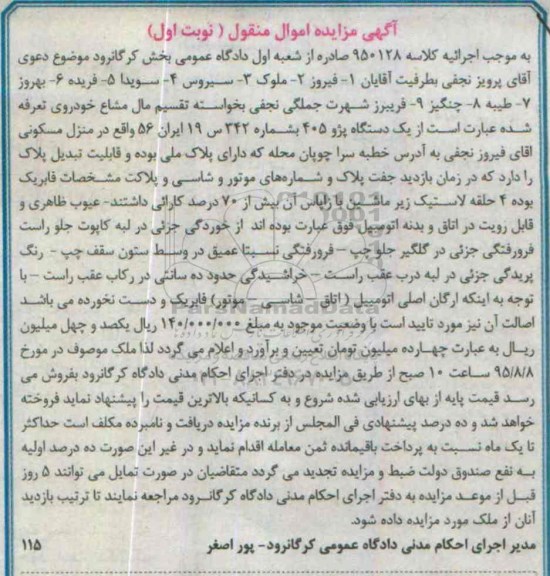 آگهی مزایده اموال منقول ( نوبت اول)
به موجب اجرائیه کلاسه ۹۵۰۱۲۸ صادره از شعبه اول دادگاه عمومی بخش کرگانرود موضوع دعوی
آقای پرویز نجفی بطرفیت آقایان ۱- فیروز ۲- ملوک ۳- سیروس ۴- سویدا ۵- فریده ۶- بهروز
۷- طیبه ۸- چنگیز ۹- فریبرز شهرت جملگی نجفی بخواسته تقسیم مال مشاع خودروی تعرفه
شده عبارت است از یک دستگاه پژو ۴۰۵ بشماره ۳۴۲ س ۱۹ ایران ۵۶ واقع در منزل مسکونی
اقای فیروز نجفی به آدرس خطبه سرا چوپان محله که دارای پلاک ملی بوده و قابلیت تبدیل پلاک
را دارد که در زمان بازدید جفت پلاک و شماره‌های موتور و شاسی و پلاکت مشخصات فابریک
بوده ۴ حلقه لاستیک زیر ماشین با زاپاس آن بیش از ۷۰ درصد کارائی داشتند- عیوب ظاهری و
قابل رویت در اتاق و بدنه اتومبیل فوق عبارت بوده اند از خوردگی جزئی در لبه کاپوت جلو راست
فرورفتگی جزئی در گلگیر جلو چپ – فرورفتگی نسبتا عمیق در وسط ستون سقف چپ - رنگ
پریدگی جزئی در لبه درب عقب راست – خراشیدگی حدود ده سانتی در رکاب عقب راست – با
توجه به اینکه ارگان اصلی اتومبیل ( اتاق – شاسی – موتور) فابریک و دست نخورده می باشد
اصالت آن نیز مورد تایید است با وضعیت موجود به مبلغ ۱۴۰/۰۰۰/۰۰۰ ریال یکصد و چهل میلیون
ریال به عبارت چهارده میلیون تومان تعیین و برآورد و اعلام می گردد لذا ملک موصوف در مورخ
۹۵/۸/۸ ساعت ۱۰ صبح از طریق مزایده در دفتر اجرای احکام مدنی دادگاه کرگانرود بفروش می
رسد قیمت پایه از بهای ارزیابی شده شروع و به کسانیکه بالاترین قیمت را پیشنهاد نماید فروخته
خواهد شد و ده درصد پیشنهادی فی المجلس از برنده مزایده دریافت و نامبرده مکلف است حداکثر
تا یک ماه نسبت به پرداخت باقیمانده ثمن معامله اقدام نماید و در غیر این صورت ده درصد اولیه
به نفع صندوق دولت ضبط و مزایده تجدید می گردد متقاضیان در صورت تمایل می توانند ۵ روز
قبل از موعد مزایده به دفتر اجرای احکام مدنی دادگاه کرگانرود مراجعه نمایند تا ترتیب بازدید
آنان از ملک مورد مزایده داده شود.
مدیر اجرای احکام مدنی دادگاه عمومی کرگانرود- پور اصغر ۱۱۵